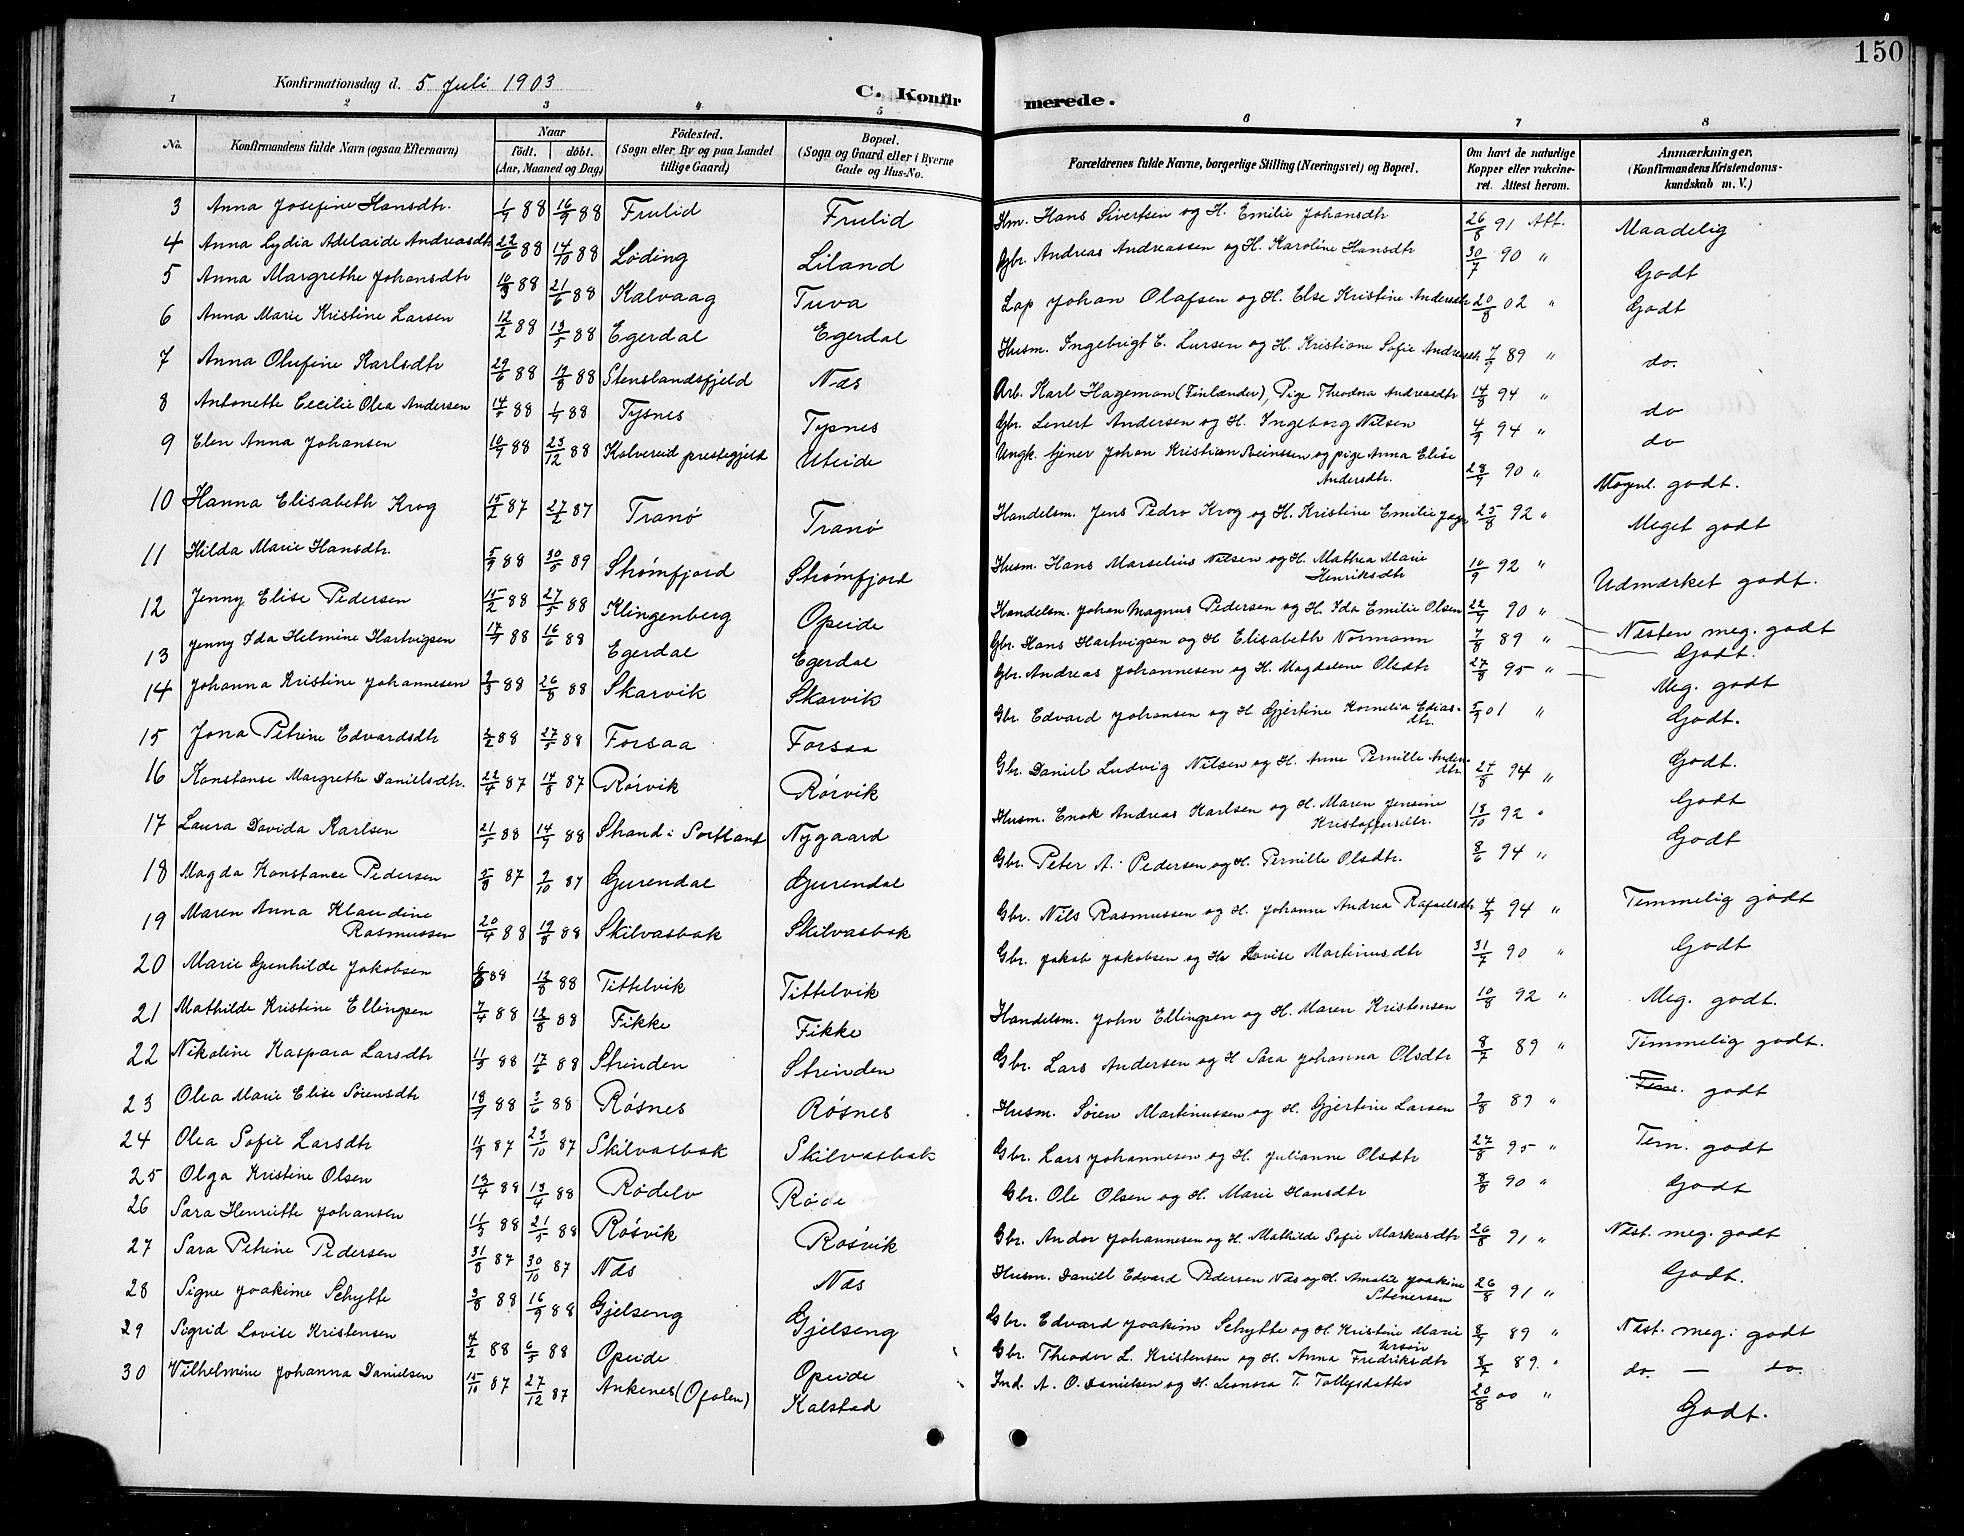 150
Konfirmationsdag d. 5 Juli 1903
C. Konfirmerede.
1 2 3 4 5 6 7 8
No. Konfirmandens fulde Navn (ogsaa Efternavn) Naar födt. döbt. (Aar, Maaned og Dag) Födested. (Sogn eller By og paa Landet tillige Gaard) Bopæl. (Sogn og Gaard eller i Byerne Gade og Hus-No. Forældrenes fulde Navne, borgerlige Stilling (Næringsvei) og Bopæl. Om havt de naturlige Kopper eller vakcineret. Attest herom. Anmærkninger. (Konfirmandens Kristendomskundskab m. V.)
3 Anna Josefine Hansdtr. 1/4 88 16/9 88 Frulid Frulid Hm. Hans Sivertsen og H. Emilie Johansdtr 26/8 91 Att. Maadelig
4 Anna Lydia Adelaide Andreasdtr 22/6 88 14/10 88 Löding Liland Gbr. Andreas Andreassen og H. Karoline Hansdtr 30/7 90 " Godt
5 Anna Margrethe Johansdtr 10/3 88 21/6 88 Kalvaag Tuva Lap Johan Olafsen og H. Else Kristine Andersdtr 20/8 02 " Godt
6 Anna Marie Kristine Larsen 12/2 88 13/5 88 Egerdal Egerdal Husm. Ingebrigt E. Larsen og H. Kristiane Sofie Andreasdtr 7/9 89 " do.
7 Anna Olufine Karlsdtr 29/6 88 19/8 88 Stenslandsfjeld Næs Arb. Karl Hageman (Finlænder), Pige Theodna Andreasdtr 14/8 94 " do
8 Antonette Cecilie Olea Andersen 14/5 88 1/4 88 Tysnes Tysnes Gbr. Lenert Andersen og H. Ingeborg Nilsen 4/9 94 " do
9 Elen Anna Johansen 10/9 88 23/12 88 Kolvereid prestegjeld Uteide Ungk. tjener Johan Kristian Beinssen og pige Anna Elise Andersdtr. 28/9 90 " Nogenl. godt.
10 Hanna Elisabeth Krog 15/2 87 27/2 87 Tranö Tranö Handelsm. Jens Pedro Krog og H. Kristine Emilie 25/8 92 " Meget godt
11 Hilda Marie Hansdtr. 5/9 88 30/5 89 Strömfjord Strömfjord Husm. Hans Marselius Nilsen og H. Mathea Marie Henriksdtr 10/9 92 " Udmærket godt.
12 Jenny Elise Pedersen 15/2 88 27/5 88 Klingenberg Opeide Handelsm. Johan Magnus Pedersen og H. Ida Emilie Olsen 22/9 90 " Næsten meg. godt
13 Jenny Ida Helmine Hartvigsen 17/4 88 16/6 88 Egerdal Egerdal Gbr. Hans Hartvigsen og H Elisabeth Normann 7/8 89 " Godt.
14 Johanna Kristine Johannesen 2/3 88 26/8 88 Skarvik Skarvik Gbr. Andreas Johannesen og H. Magdalene Olsdtr 27/8 95 " Meg. godt
15 Jona Petrine Edvardsdtr 2/2 88 27/5 88 Forsaa Forsaa Gbr. Edvard Johansen og H Gjertine Kornelia Ediasdtr. 5/9 01 " Godt.
16 Konstanse Margrethe Danielsdtr. 22/4 87 14/8 87 Rörvik Rörvik Gbr. Daniel Ludvig Nilsen og H. Anne Pernille Andersdtr. 27/8 94 " Godt.
17 Laura Davida Karlsen 21/5 88 14/9 88 Strand i Sortland Nygaard Husm. Enok Andreas Karlsen og H. Maren Jensine Kristoffersdtr. 13/10 92 " Godt
18 Magda Konstance Pedersen 5/8 87 2/10 87 Gurendal Gurendal Gbr. Peter A. Pedersen og H. Pernille Olsdtr. 8/6 94 " Godt
19 Maren Anna Klaudine Rasmussen 20/4 88 19/8 88 Skilvasbak Skilvasbak Gbr. Nils Rasmussen og H. Johanne Andrea Rafaelsdtr 4/9 94 " Temmelig godt
20 Marie Gunhilde Jakobsen 6/6 88 12/8 88 Tittelvik Tittelvik Gbr. Jakob Jakobsen og H. Lovise Martinusdtr 31/7 90 " Godt
21 Mathilde Kristine Ellingsen 7/4 88 12/8 88 Fikke Fikke Handelsm. John Ellingsen og H. Maren Kristensen 10/8 92 " Meg. godt.
22 Nikoline Kaspara Larsdtr 11/3 88 17/6 88 Strinden Strinden Gbr. Lars Andersen og H Sara Johanna Olsdtr 8/7 89 " Temmelig godt.
23 Olea Marie Elise Sörensdtr 18/4 88 3/6 88 Rösnes Rösnes Husm. Sören Martinussen og H. Gjertine Larsen 2/8 89 " Tem. godt
24 Olea Sofie Larsdtr 11/9 87 23/10 87 Skilvasbak Skilvasbak Gbr. Lars Johannesen og H. Julianne Olsdtr 27/8 95 " Tem. godt
25 Olga Kristine Olsen 12/4 88 13/4 88 Rödelv Röde Gbr. Ole Olsen og H. Marie Hansdtr 8/8 90 " Godt
26 Sara Henriette Johansen 11/3 88 21/5 88 Rösvik Rösvik Gbr. Andor Johannesen og H. Mathilde Sofie Markusdtr 26/8 91 " Næst. meg. godt
27 Sara Petrine Pedersen 31/8 87 30/10 87 Næs Næs Husm. Daniel Edvard Pedersen Næs og H. Amalie Joakime Stenersen 26/8 91 " Godt.
28 Signe Joakime Schytte 3/8 88 16/9 88 Gjelseng Gjelseng Gbr. Edvard Joakim Schytte og H Kristine Marie Ursin 8/9 89 " Næst. meg: godt
29 Sigrid Lovise Kristensen 7/2 88 6/5 88 Opeide Opeide Gbr. Theodor L. Kristensen og H. Anna Fredriksdtr 8/7 89. " do. — do.
30 Vilhelmine Johanna Danielsen 15/10 87 27/12 87 Ankenes (Ofoten) Kalstad Ind. A. O. Danielsen og H. Leonora T. Tollefsdatter 20/8 00 " Godt.